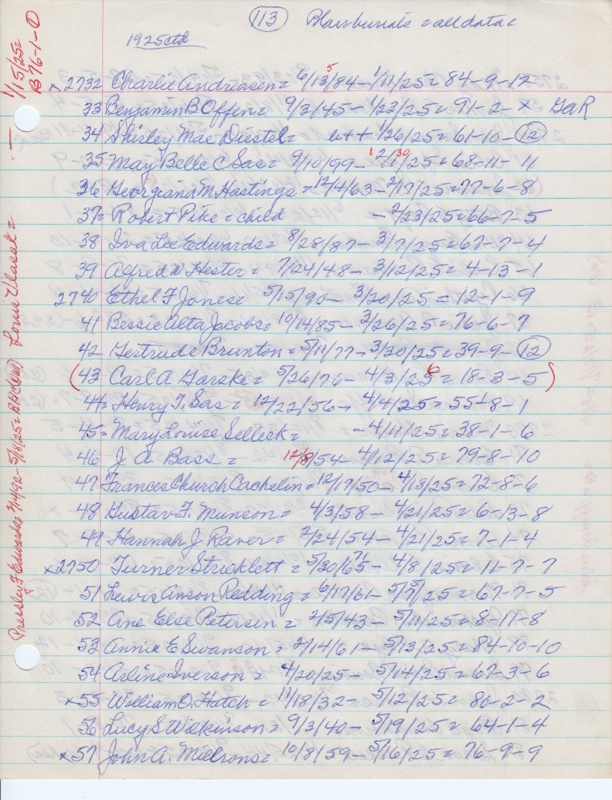 113 Blair burials = all data =
1925 ctd
x2732 Charlie Andreasen = 6/13/84 - 1/11/25 = 84-9-12
5
33 Benjamin B Offen = 9/3/45 - 1/23/25 = 91-2-x GaR
34 Shirley Mae Diestel = b++ 1/26/25 = 61-10-12
35 May Belle C Sas = 9/10/99 - 2/1/25 = 68-11-11
1 30
36 Georgiana M Hastings = 12/4/63 - 2/17/25 = 77-6-8
37 = Robert Pike = child - 2/23/25 = 66-7-5
38 Iva Lee Edwards = 8/28/87 - 3/7/25 = 67-7-4
39 Alfred W Hester = 7/24/48 - 3/12/25 = 4-13-1
2740 Ethel F Jones = 5/15/90 - 3/20/25 = 12-1-9
41 Bessie Alta Jacobs = 10/14/85 - 3/26/25 = 76-6-7
42 Gertrude Brunton = 5/11/77 - 3/20/25 = 39-9-12
(43 Carl A Garske = 5/26/76 - 4/3/25 = 18-3-5)
6
44 = Henry T. Sas = 12/22/56 - 4/4/25 = 55-8-1
45 = Mary Louise Selleck = - 4/11/25 = 38-1-6
46 J A Bass = 12/8/54 - 4/12/25 = 79-8-10
47 Frances Church Cachelin = 12/17/50 - 4/18/25 = 72-8-6
48 Gustav F. Munson = 4/3/58 - 4/21/25 = 6-13-8
49 Hannah J Raver = 2/24/54 - 4/21/25 = 7-1-4
x2750 Turner Stricklett = 5/30/65 - 4/8/25 = 11-7-7
71
51 Lewis Anson Redding = 6/17/61 - 5/5/25 = 67-7-5
52 Ane Else Petersen = 2/5/43 - 5/11/25 = 8-17-8
53 Annie E Swanson = 2/14/61 - 5/13/25 = 84-10-10
54 Arline Iverson = 4/20/25 - 5/14/25 = 67-3-6
x55 William O. Hatch = 11/18/32 - 5/12/25 = 80-2-2
56 Lucy S Wilkinson = 9/3/40 - 5/19/25 = 64-1-4
x57 John A. Mielrons = 10/8/59 - 5/16/25 = 76-9-9
Louis Vlasak = — 1/15/25 = B 76-1-0
Pressley F Edwards 5/18/25 =